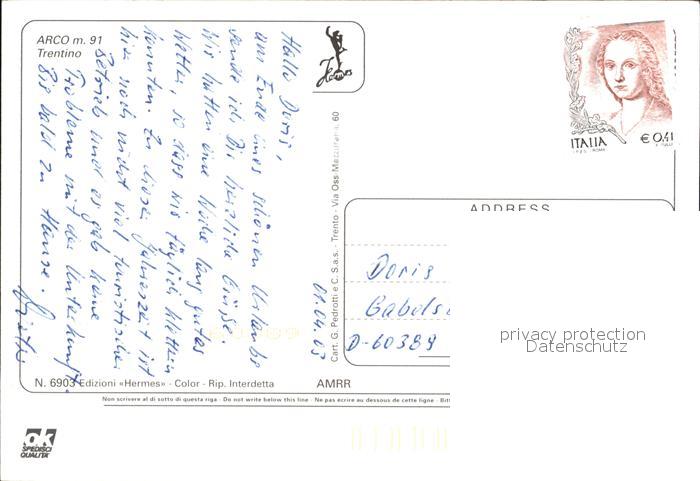 ARCO m. 91
Trentino
Hallo Doris,
am Ende eines schönen Urlaubs
sende ich Dir herzliche Grüße.
Wir hatten eine Woche lang gutes
Wetter, so dass wir täglich klettern
konnten. Zu dieser Jahreszeit ist
hier noch nicht viel touristischer
Betrieb und es gab keine
Probleme mit der Unterkunft.
Bis bald zu Hause.
01.04.03
Hermes
Cart. G. Pedrotti e C. S.a.s. - Trento - Via Oss. 60
ITALIA
€ 0,41
ADDRESS
Doris
D-60389
privacy protection
Datenschutz
N. 6903 Edizioni «Hermes» - Color - Rip. Interdetta
AMRR
Non scrivere al di sotto di questa riga - Do not write below this line - Ne pas écrire au dessous de cette ligne - Bitt
ok
SPEDISCI
QUALITA'